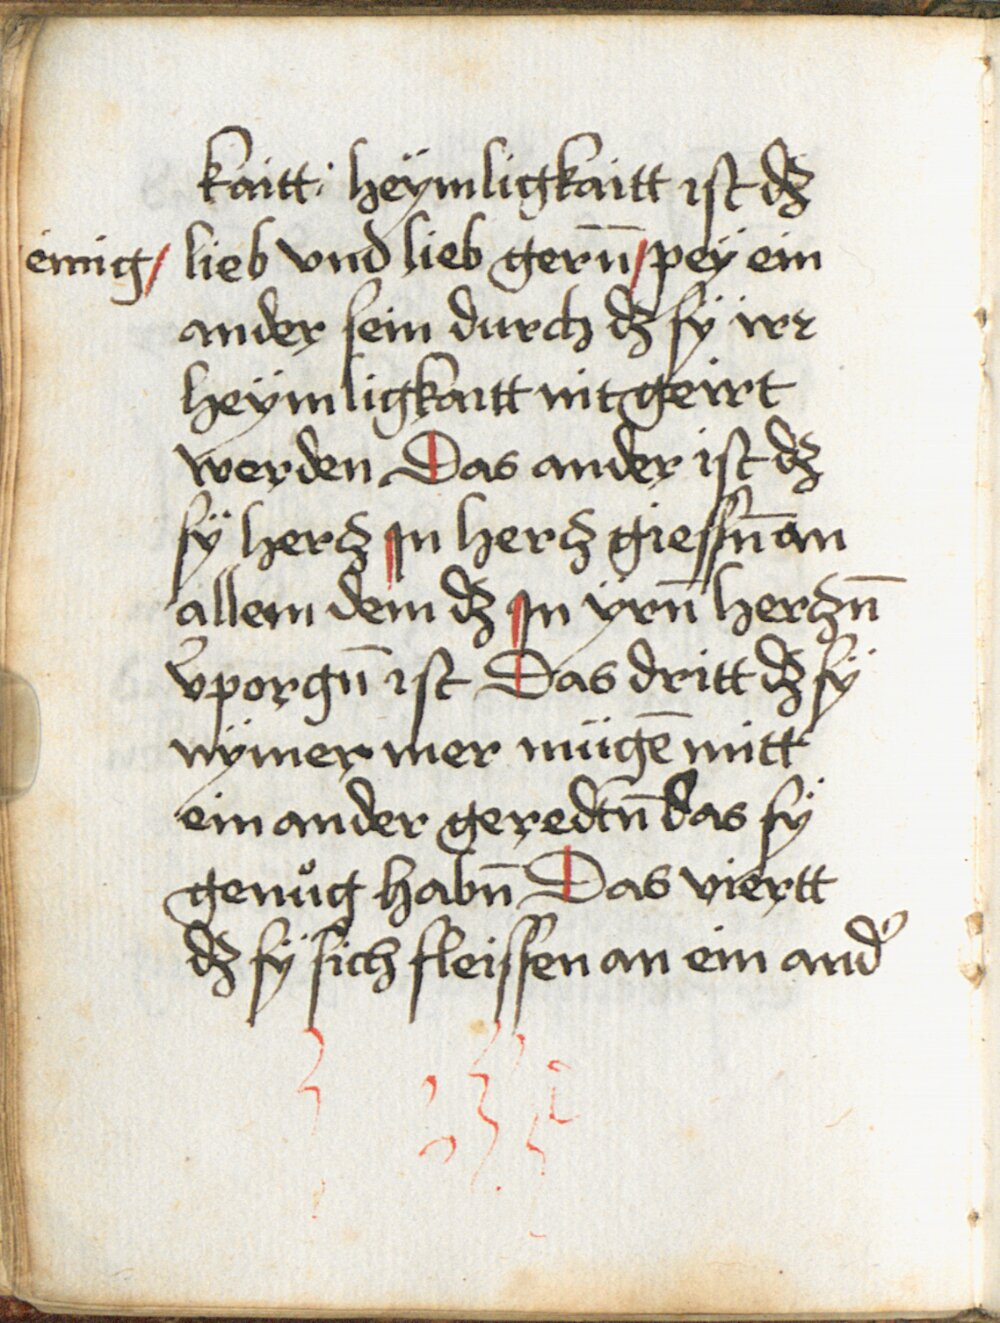 kaitt · heÿmligkaitt ist dz
einig / lieb vnd lieb gerñ / peÿ ein
ander sein durch dz sÿ irr
heÿmligkaitt nit geirrt
werden Das ander ist dz
sÿ hercz In hercz giessn̄ an
allem dem dz In ÿrn̄ herczn̄
v̓porgn̄ ist Das dritt dz sÿ
nÿmer mer mügē mitt
ein ander geredtn̄ das sÿ
genůg habn̄ Das viertt
dz sÿ sich fleissen an ein and̓